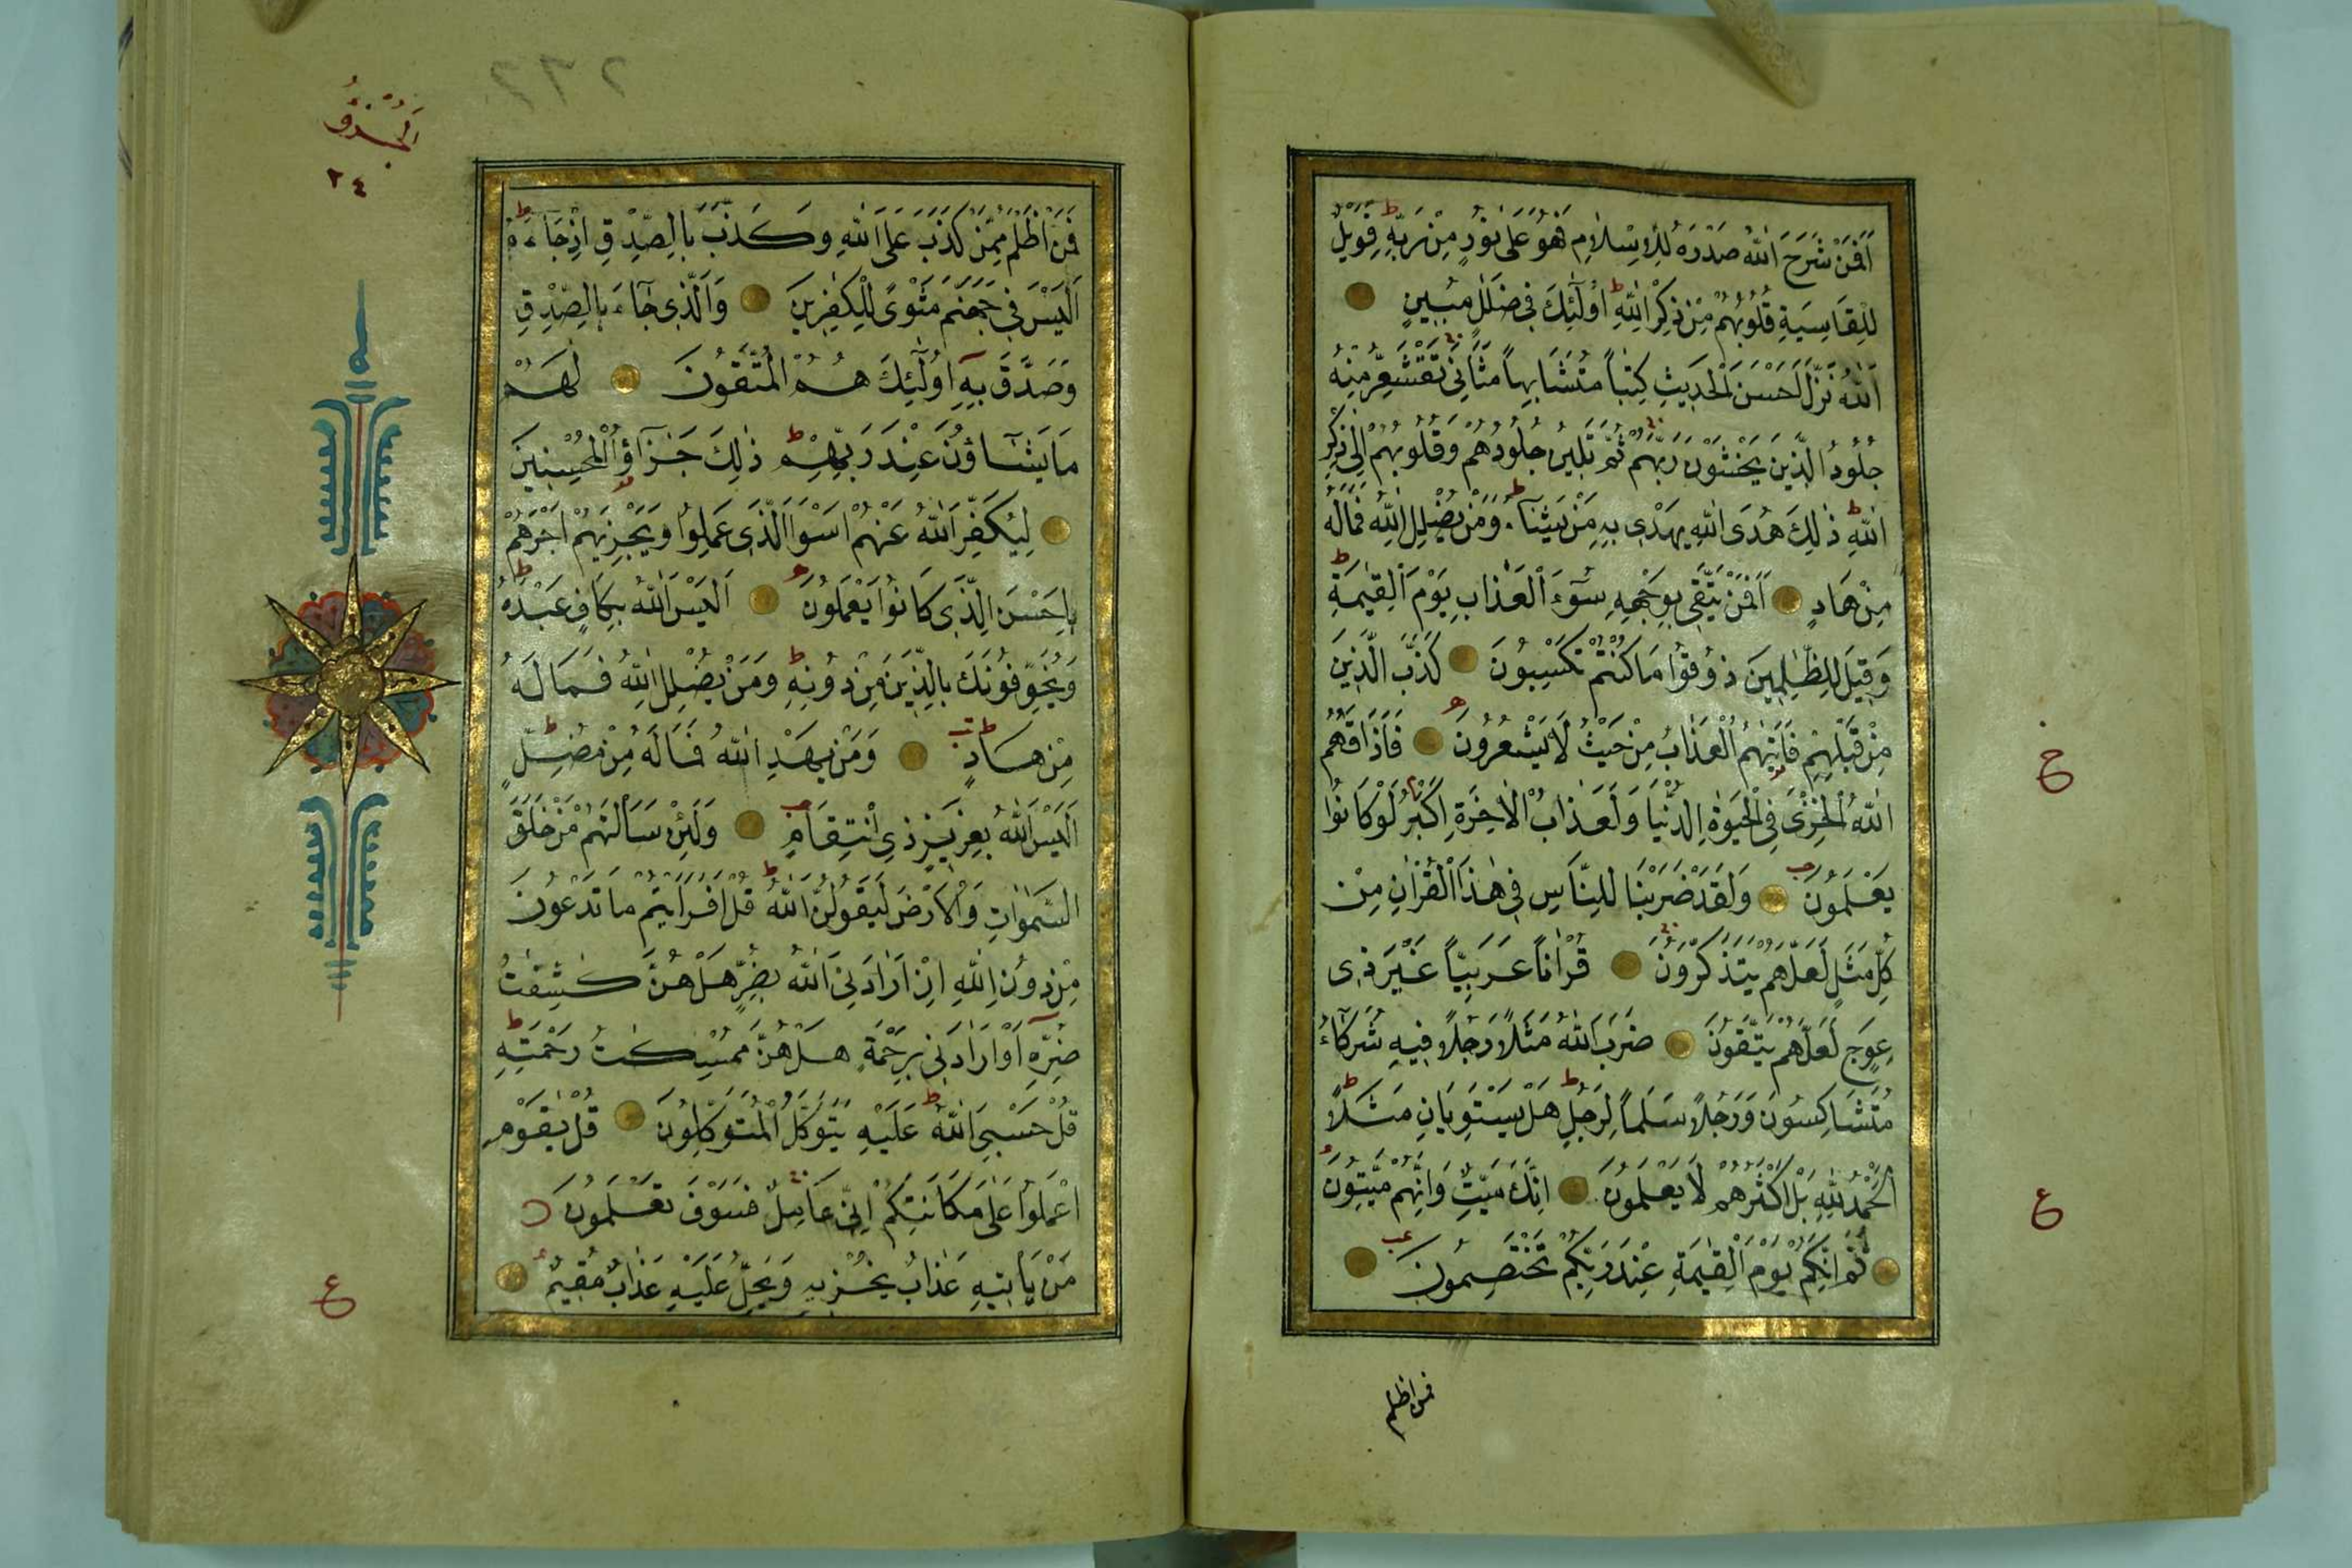 اَفَمَنْ شَرَحَ اللّٰهُ صَدْرَهُ لِلْاِسْلَامِ فَهُوَ عَلٰى نُورٍ مِنْ رَبِّهٖ ط فَوَيْلٌ
لِلْقَاسِيَةِ قُلُوبُهُمْ مِنْ ذِكْرِ اللّٰهِ ط اُولٰٓئِكَ فِى ضَلٰلٍ مُبِينٍ
اَللّٰهُ نَزَّلَ اَحْسَنَ الْحَدِيثِ كِتٰباً مُتَشَابِهاً مَثَانِىَ تَقْشَعِرُّ مِنْهُ
جُلُودُ الَّذِينَ يَخْشَوْنَ رَبَّهُمْ ثُمَّ تَلِينُ جُلُودُهُمْ وَقُلُوبُهُمْ اِلٰى ذِكْرِ
اللّٰهِ ط ذٰلِكَ هُدَى اللّٰهِ يَهْدِى بِهٖ مَنْ يَشَآءُ ط وَمَنْ يُضْلِلِ اللّٰهُ فَمَالَهُ
مِنْ هَادٍ اَفَمَنْ يَتَّقِى بِوَجْهِهٖ سُوٓءَ الْعَذَابِ يَوْمَ الْقِيٰمَةِ ط
وَقِيلَ لِلظّٰلِمِينَ ذُوقُوا مَا كُنْتُمْ تَكْسِبُونَ كَذَّبَ الَّذِينَ
مِنْ قَبْلِهِمْ فَاَتٰيهُمُ الْعَذَابُ مِنْ حَيْثُ لَا يَشْعُرُونَ فَاَذَاقَهُمُ
اللّٰهُ الْخِزْىَ فِى الْحَيٰوةِ الدُّنْيَا وَلَعَذَابُ الْاٰخِرَةِ اَكْبَرُ لَوْ كَانُوا
يَعْلَمُونَ وَلَقَدْ ضَرَبْنَا لِلنَّاسِ فِى هٰذَا الْقُرْاٰنِ مِنْ
كُلِّ مَثَلٍ لَعَلَّهُمْ يَتَذَكَّرُونَ قُرْاٰناً عَرَبِيّاً غَيْرَ ذِى
عِوَجٍ لَعَلَّهُمْ يَتَّقُونَ ضَرَبَ اللّٰهُ مَثَلاً رَجُلاً فِيهِ شُرَكَآءُ
مُتَشَاكِسُونَ وَرَجُلاً سَلَماً لِرَجُلٍ ط هَلْ يَسْتَوِيَانِ مَثَلاً ط
اَلْحَمْدُ لِلّٰهِ بَلْ اَكْثَرُهُمْ لَا يَعْلَمُونَ اِنَّكَ مَيِّتٌ وَاِنَّهُمْ مَيِّتُونَ
ثُمَّ اِنَّكُمْ يَوْمَ الْقِيٰمَةِ عِنْدَ رَبِّكُمْ تَخْتَصِمُونَ
فمن اظلم
خ
ع
اَلْجُزْؤُ
٢٤
فَمَنْ اَظْلَمُ مِمَّنْ كَذَبَ عَلَى اللّٰهِ وَكَذَّبَ بِالصِّدْقِ اِذْ جَآءَهُ ط
اَلَيْسَ فِى جَهَنَّمَ مَثْوًى لِلْكٰفِرِينَ وَالَّذِى جَآءَ بِالصِّدْقِ
وَصَدَّقَ بِهٖٓ اُولٰٓئِكَ هُمُ الْمُتَّقُونَ لَهُمْ
مَا يَشَآؤُنَ عِنْدَ رَبِّهِمْ ط ذٰلِكَ جَزَآؤُ الْمُحْسِنِينَ
لِيُكَفِّرَ اللّٰهُ عَنْهُمْ اَسْوَاَ الَّذِى عَمِلُوا وَيَجْزِيَهُمْ اَجْرَهُمْ
بِاَحْسَنِ الَّذِى كَانُوا يَعْمَلُونَ اَلَيْسَ اللّٰهُ بِكَافٍ عَبْدَهُ ط
وَيُخَوِّفُونَكَ بِالَّذِينَ مِنْ دُونِهٖ ط وَمَنْ يُضْلِلِ اللّٰهُ فَمَا لَهُ
مِنْ هَادٍ وَمَنْ يَهْدِ اللّٰهُ فَمَا لَهُ مِنْ مُضِلٍّ ط
اَلَيْسَ اللّٰهُ بِعَزِيزٍ ذِى انْتِقَامٍ وَلَئِنْ سَاَلْتَهُمْ مَنْ خَلَقَ
السَّمٰوَاتِ وَالْاَرْضَ لَيَقُولُنَّ اللّٰهُ ط قُلْ اَفَرَاَيْتُمْ مَا تَدْعُونَ
مِنْ دُونِ اللّٰهِ اِنْ اَرَادَنِىَ اللّٰهُ بِضُرٍّ هَلْ هُنَّ كٰشِفٰتُ
ضُرِّهٖٓ اَوْ اَرَادَنِى بِرَحْمَةٍ هَلْ هُنَّ مُمْسِكٰتُ رَحْمَتِهٖ ط
قُلْ حَسْبِىَ اللّٰهُ ط عَلَيْهِ يَتَوَكَّلُ الْمُتَوَكِّلُونَ قُلْ يٰقَوْمِ
اعْمَلُوا عَلٰى مَكَانَتِكُمْ اِنِّى عَامِلٌ فَسَوْفَ تَعْلَمُونَ
مَنْ يَاْتِيهِ عَذَابٌ يُخْزِيهِ وَيَحِلُّ عَلَيْهِ عَذَابٌ مُقِيمٌ
ع